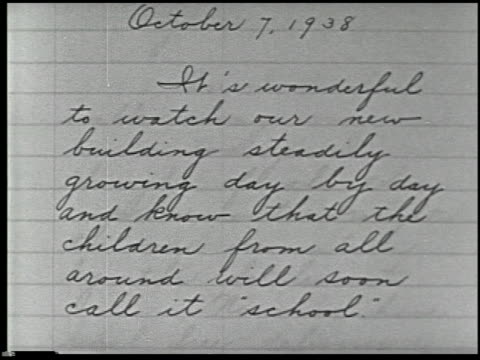 October 7, 1938
It's wonderful
to watch our new
building steadily
growing day by day
and know that the
children from all
around will soon
call it "school."